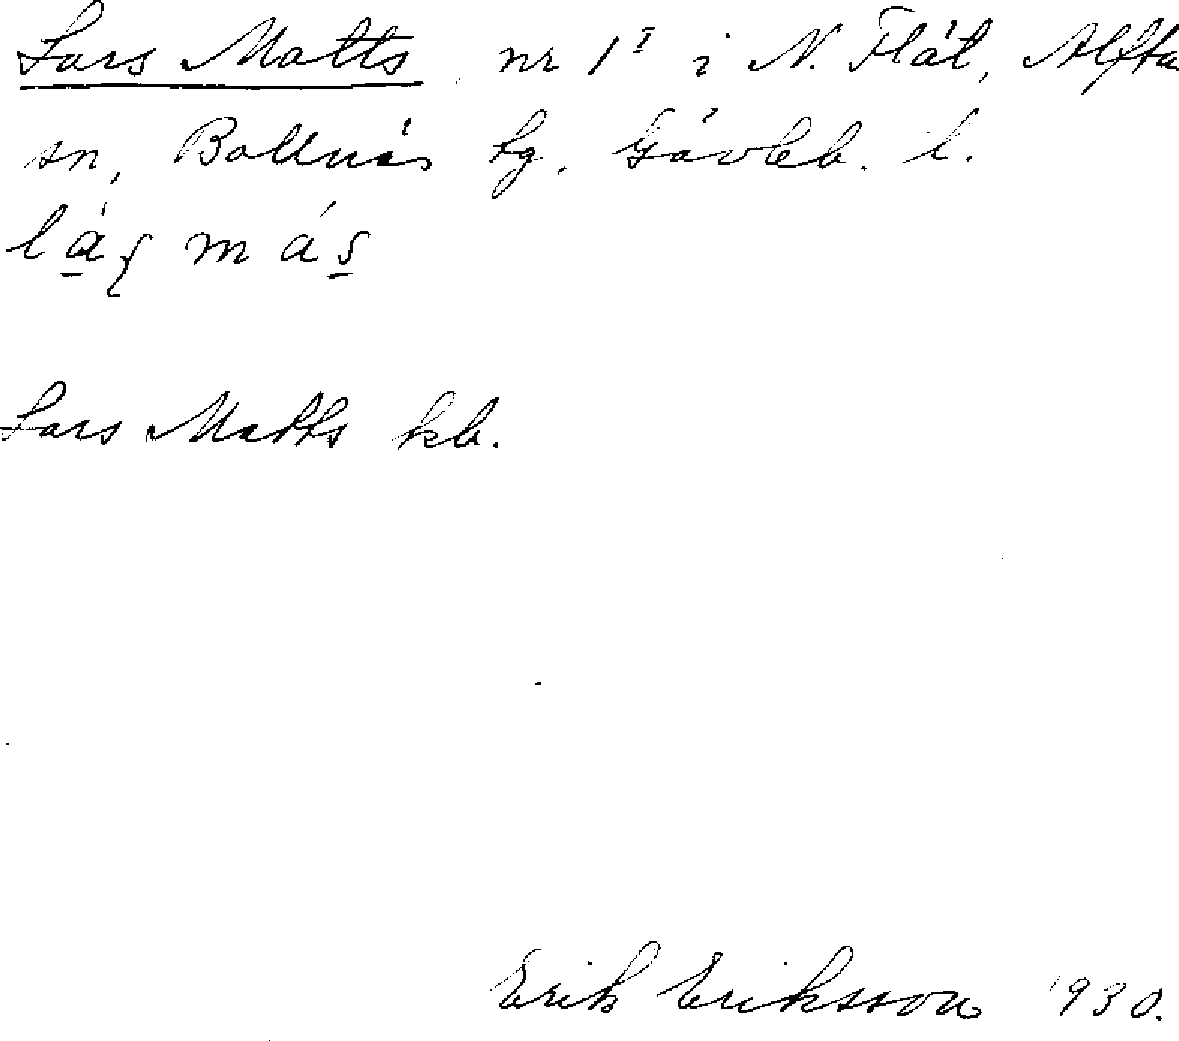 Lars Matts, nr 1¹ i N. Flät, Alfta
sn, Bollnäs tg. Gävleb. l.
Lars Matts kb.
Erik Eriksson 1930.